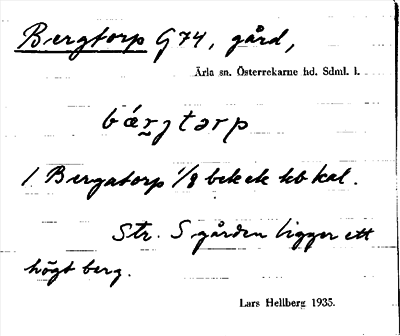 Bergtorp G74, gård,
Ärla sn. Österrekarne hd. Sdml. l.
bárgtarp
1 Bergatorp 1/8 bekek kb kal.
Str. S gården ligger ett
högt berg.
Lars Hellberg 1935.